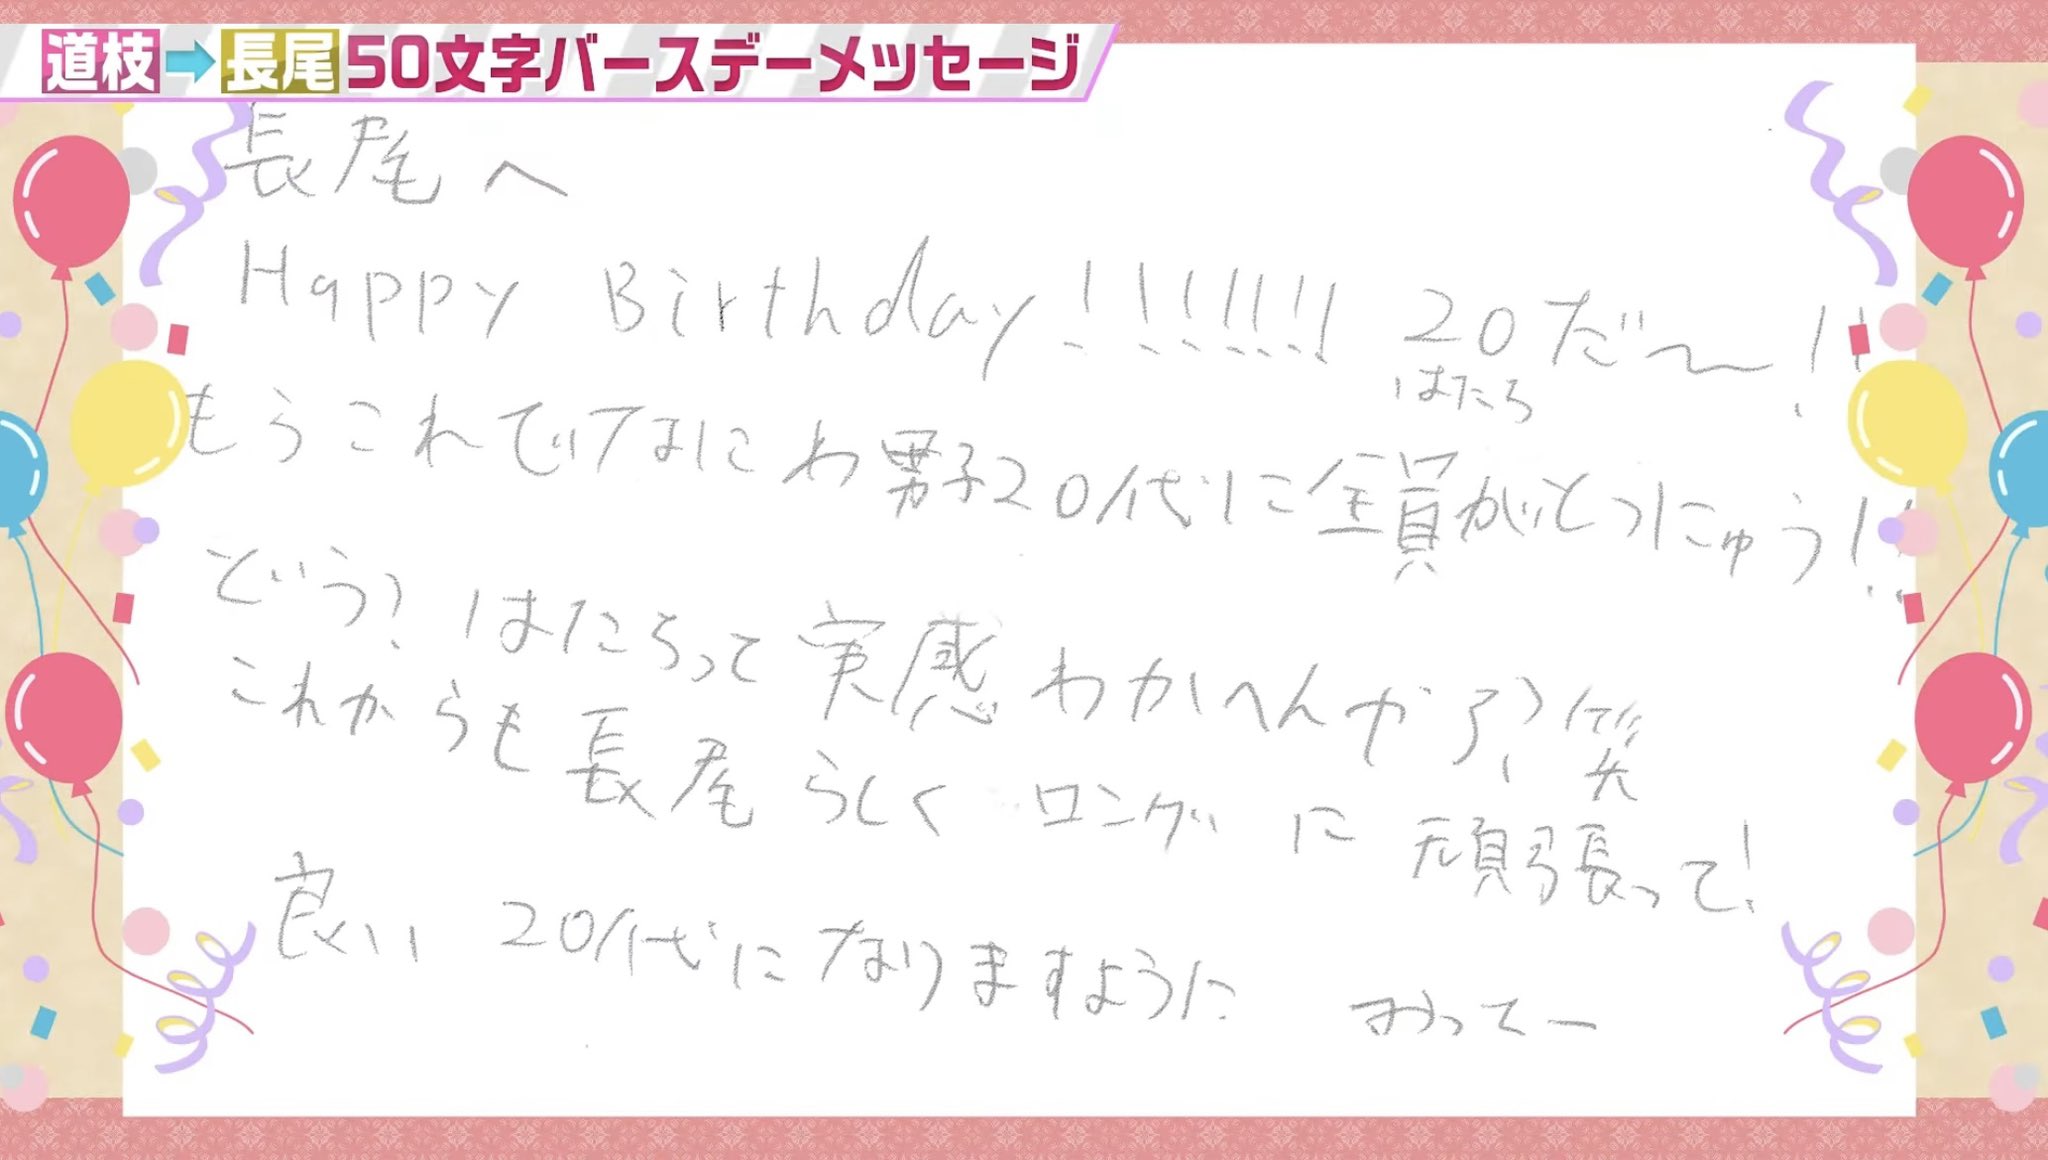 道枝→長尾 50文字バースデーメッセージ
長尾へ
Happy Birthday!!!!!! 20だ〜!!
はたち
もうこれでなにわ男子20代に全員がとつにゅう!!
どう?はたちって実感わかへんやろ?笑
これからも長尾らしくロングに頑張って!
良い20代になりますように みっちー